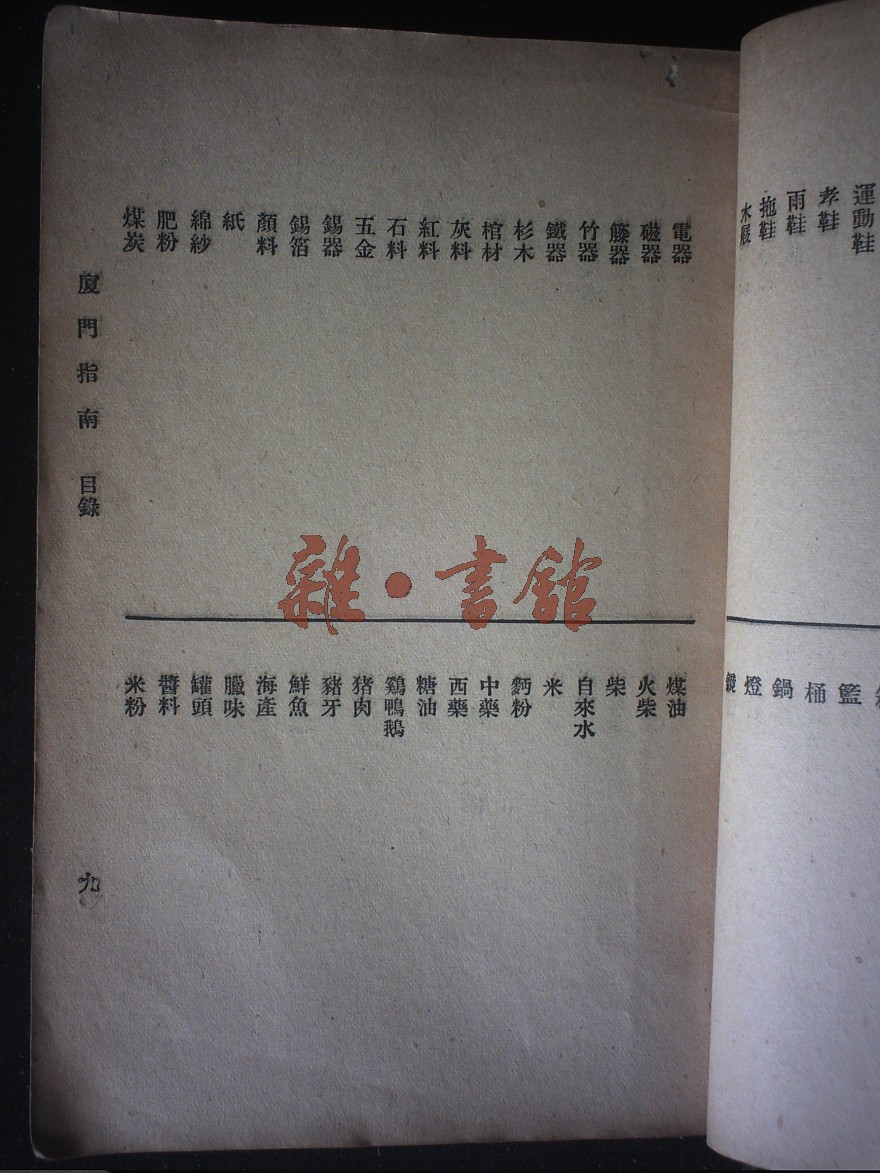 運動鞋
孝鞋
雨鞋
拖鞋
木屐
籃
桶
鍋
燈
鏡
電器
磁器
籐器
竹器
鐵器
杉木
棺材
灰料
紅料
石料
五金
錫器
錫箔
顏料
紙
綿紗
肥粉
煤炭
煤油
火柴
柴
自來水
米
麪粉
中藥
西藥
糖油
鷄鴨鹅
猪肉
豬牙
鮮魚
海產
臘味
罐頭
醬料
米粉
廈門指南 目錄
九
雜·書館